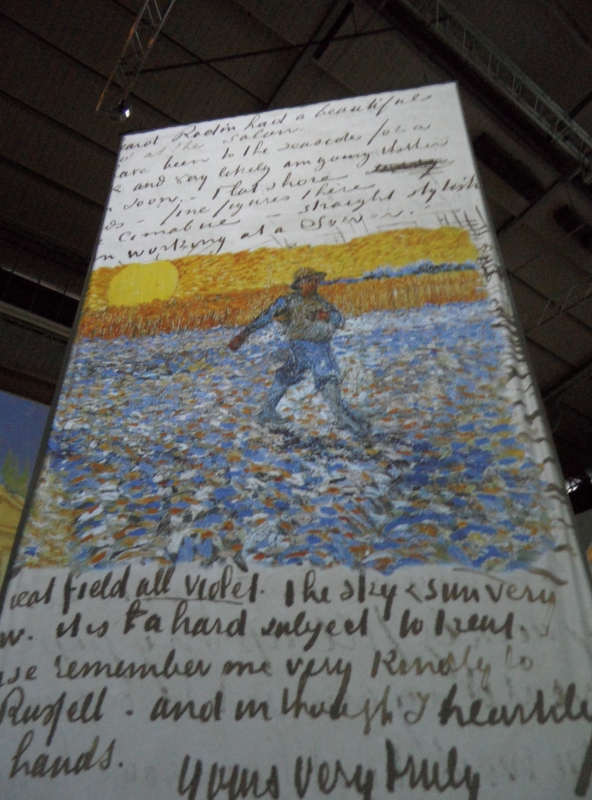 Rodin had a beautiful
at the Salon.
have been to the seaside for a
& and very likely am going thither
soon. - Flat shore
fine figures there
Cimabue - straight stylish
working at a Sower.
field all violet. The sky & sun very
it is a hard subject to treat.
remember me very Kindly to
Russell - and in thought I heartily
hands.
yours very truly